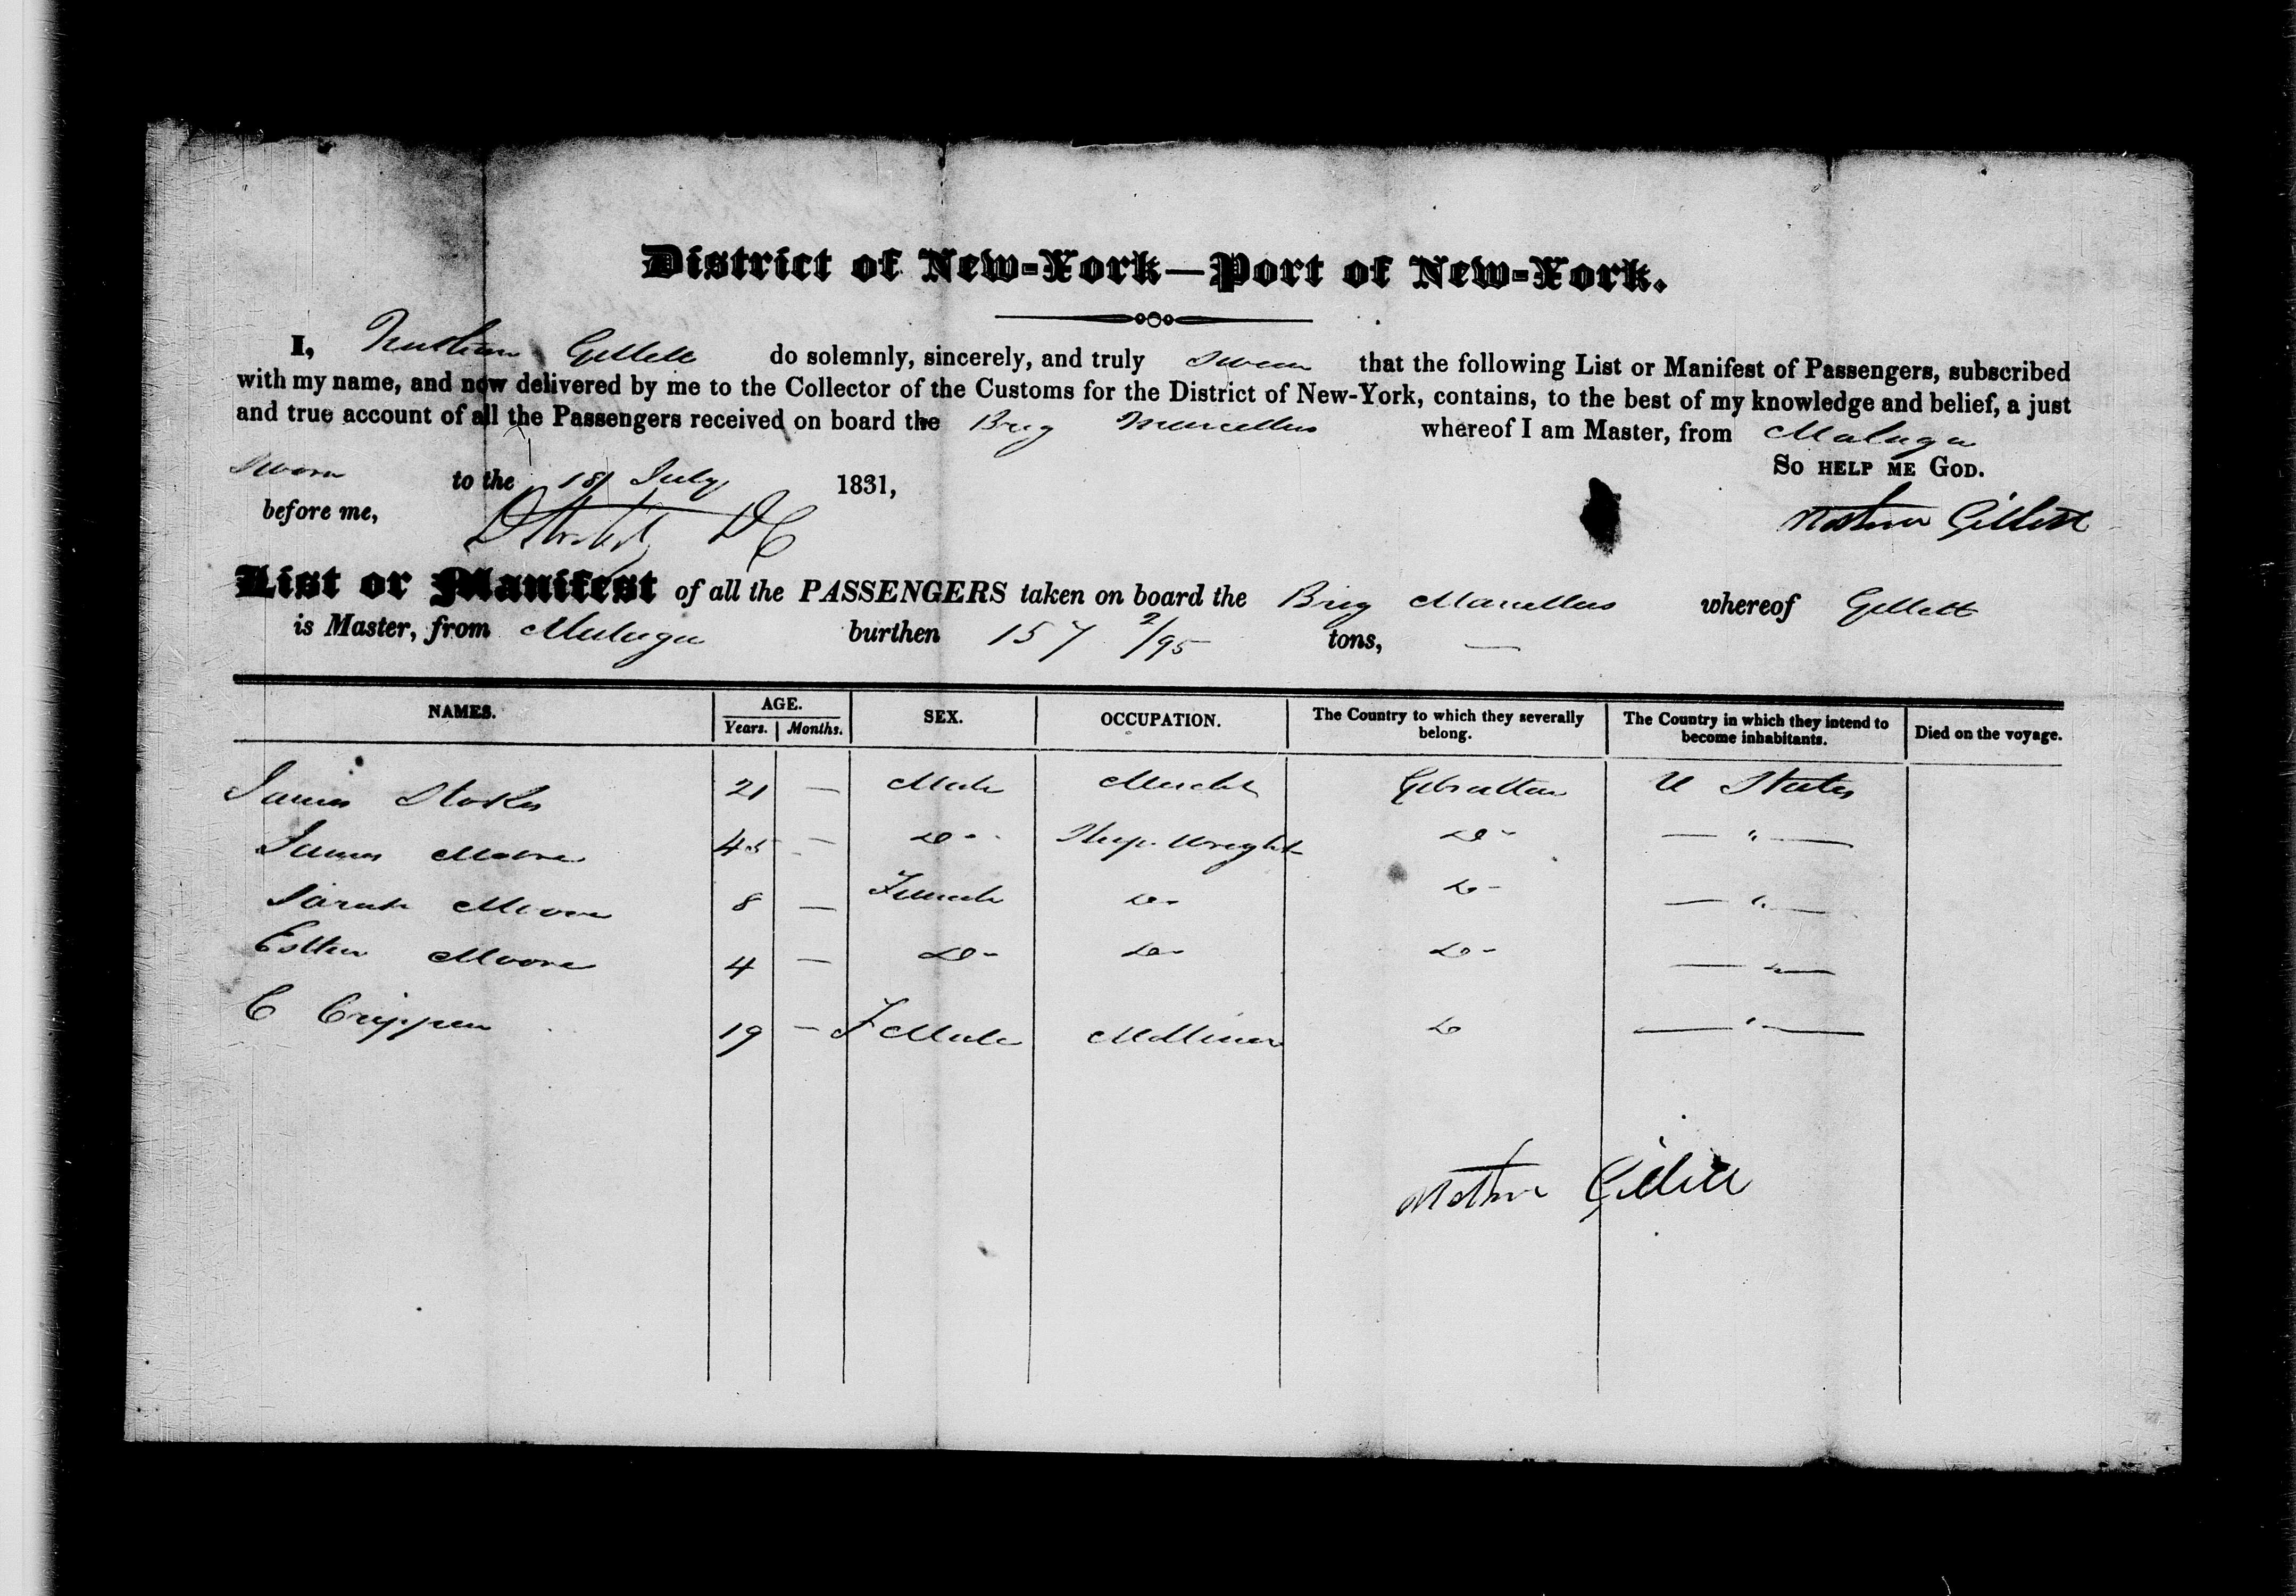 District of New-York—Port of New-York.
I, Nathan Gillett do solemnly, sincerely, and truly swear that the following List or Manifest of Passengers, subscribed
with my name, and now delivered by me to the Collector of the Customs for the District of New-York, contains, to the best of my knowledge and belief, a just
and true account of all the Passengers received on board the Brig Marcellus whereof I am Master, from Malaga
So HELP ME GOD.
Sworn to the 18 July 1831,
before me, DC
Nathan Gillett
List or Manifest of all the PASSENGERS taken on board the Brig Marcellus whereof Gillett
is Master, from Malaga burthen 157 2/95 tons, —
NAMES. AGE. SEX. OCCUPATION. The Country to which they severally belong. The Country in which they intend to become inhabitants. Died on the voyage.
Years. Months.
James Stokes 21 — Male Mercht Gibraltar U States
James Moore 45 — Do - Ship Wright Do - — " —
Sarah Moore 8 — Female Do - Do - — " —
Esther Moore 4 — Do - Do - Do - — " —
C Crippen 19 — Female Milliner Do — " —
Nathan Gillett